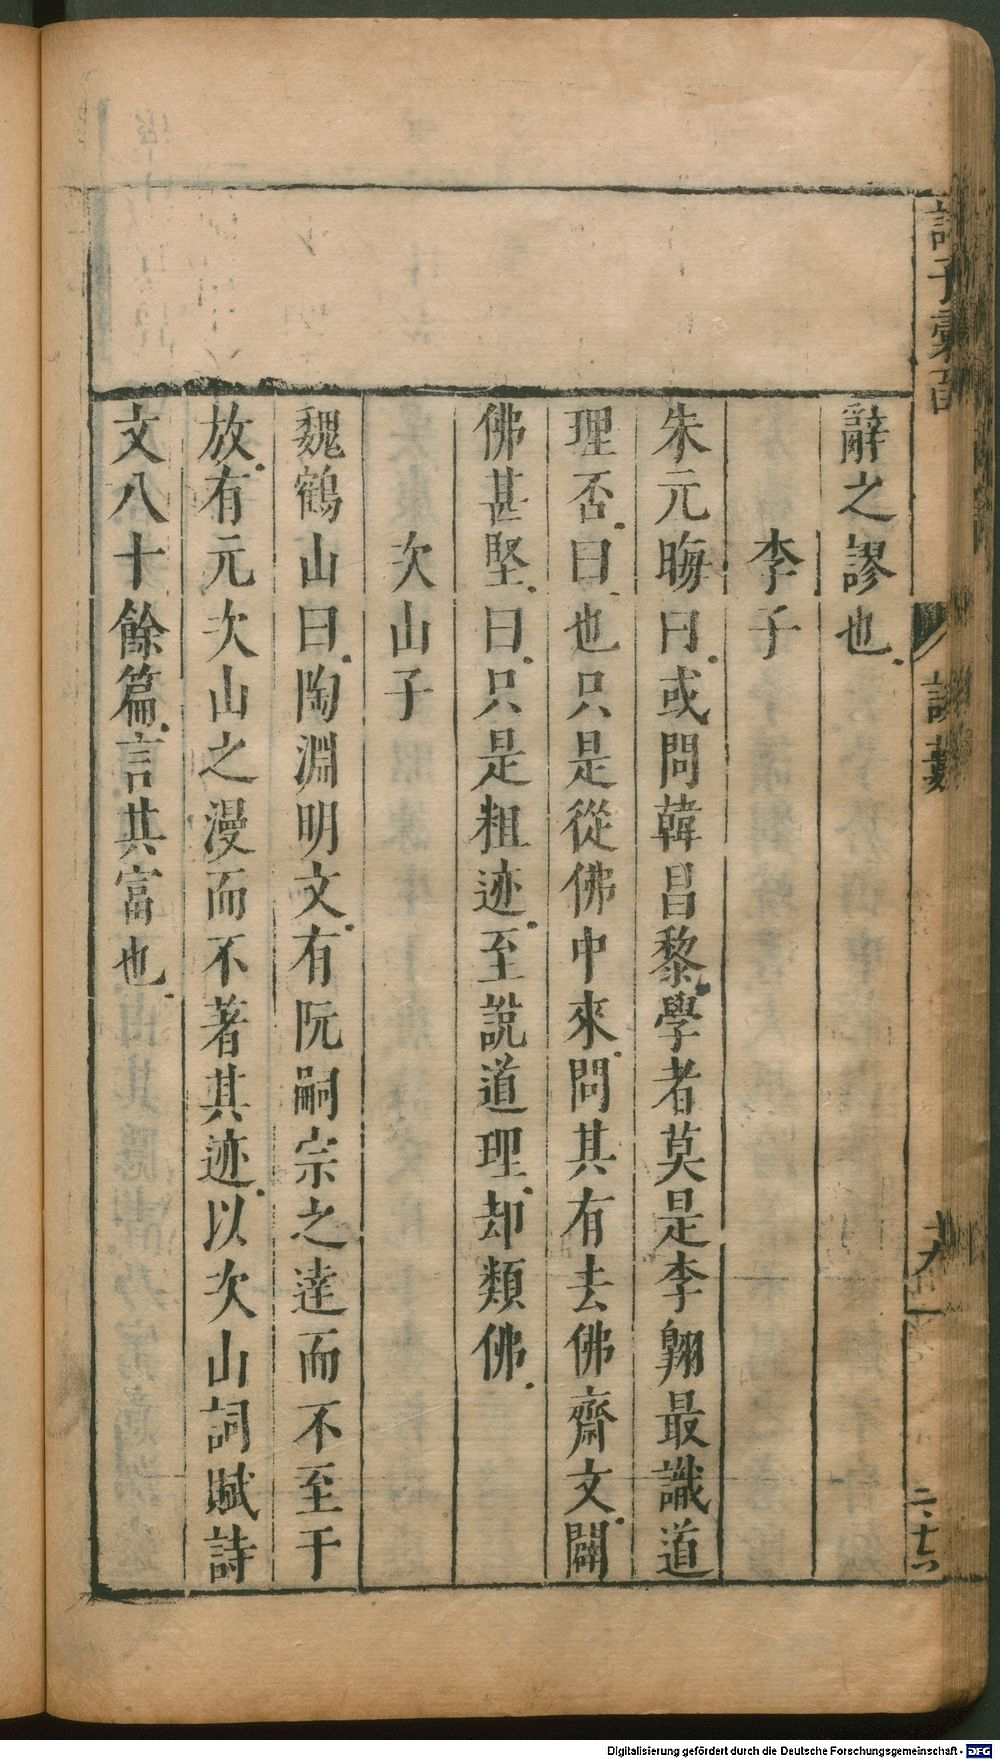 諸子彙函
諸數
九
二十六
辭之謬也
李子
朱元晦曰或問韓昌黎學者莫是李翺最識道
理否曰也只是從佛中來問其有去佛齋文闢
佛甚堅曰只是粗迹至說道理却類佛
次山子
魏鶴山曰陶淵明文有阮嗣宗之達而不至于
放有元次山之漫而不著其迹以次山詞賦詩
文八十餘篇言其富也
Digitalisierung gefördert durch die Deutsche Forschungsgemeinschaft - DFG